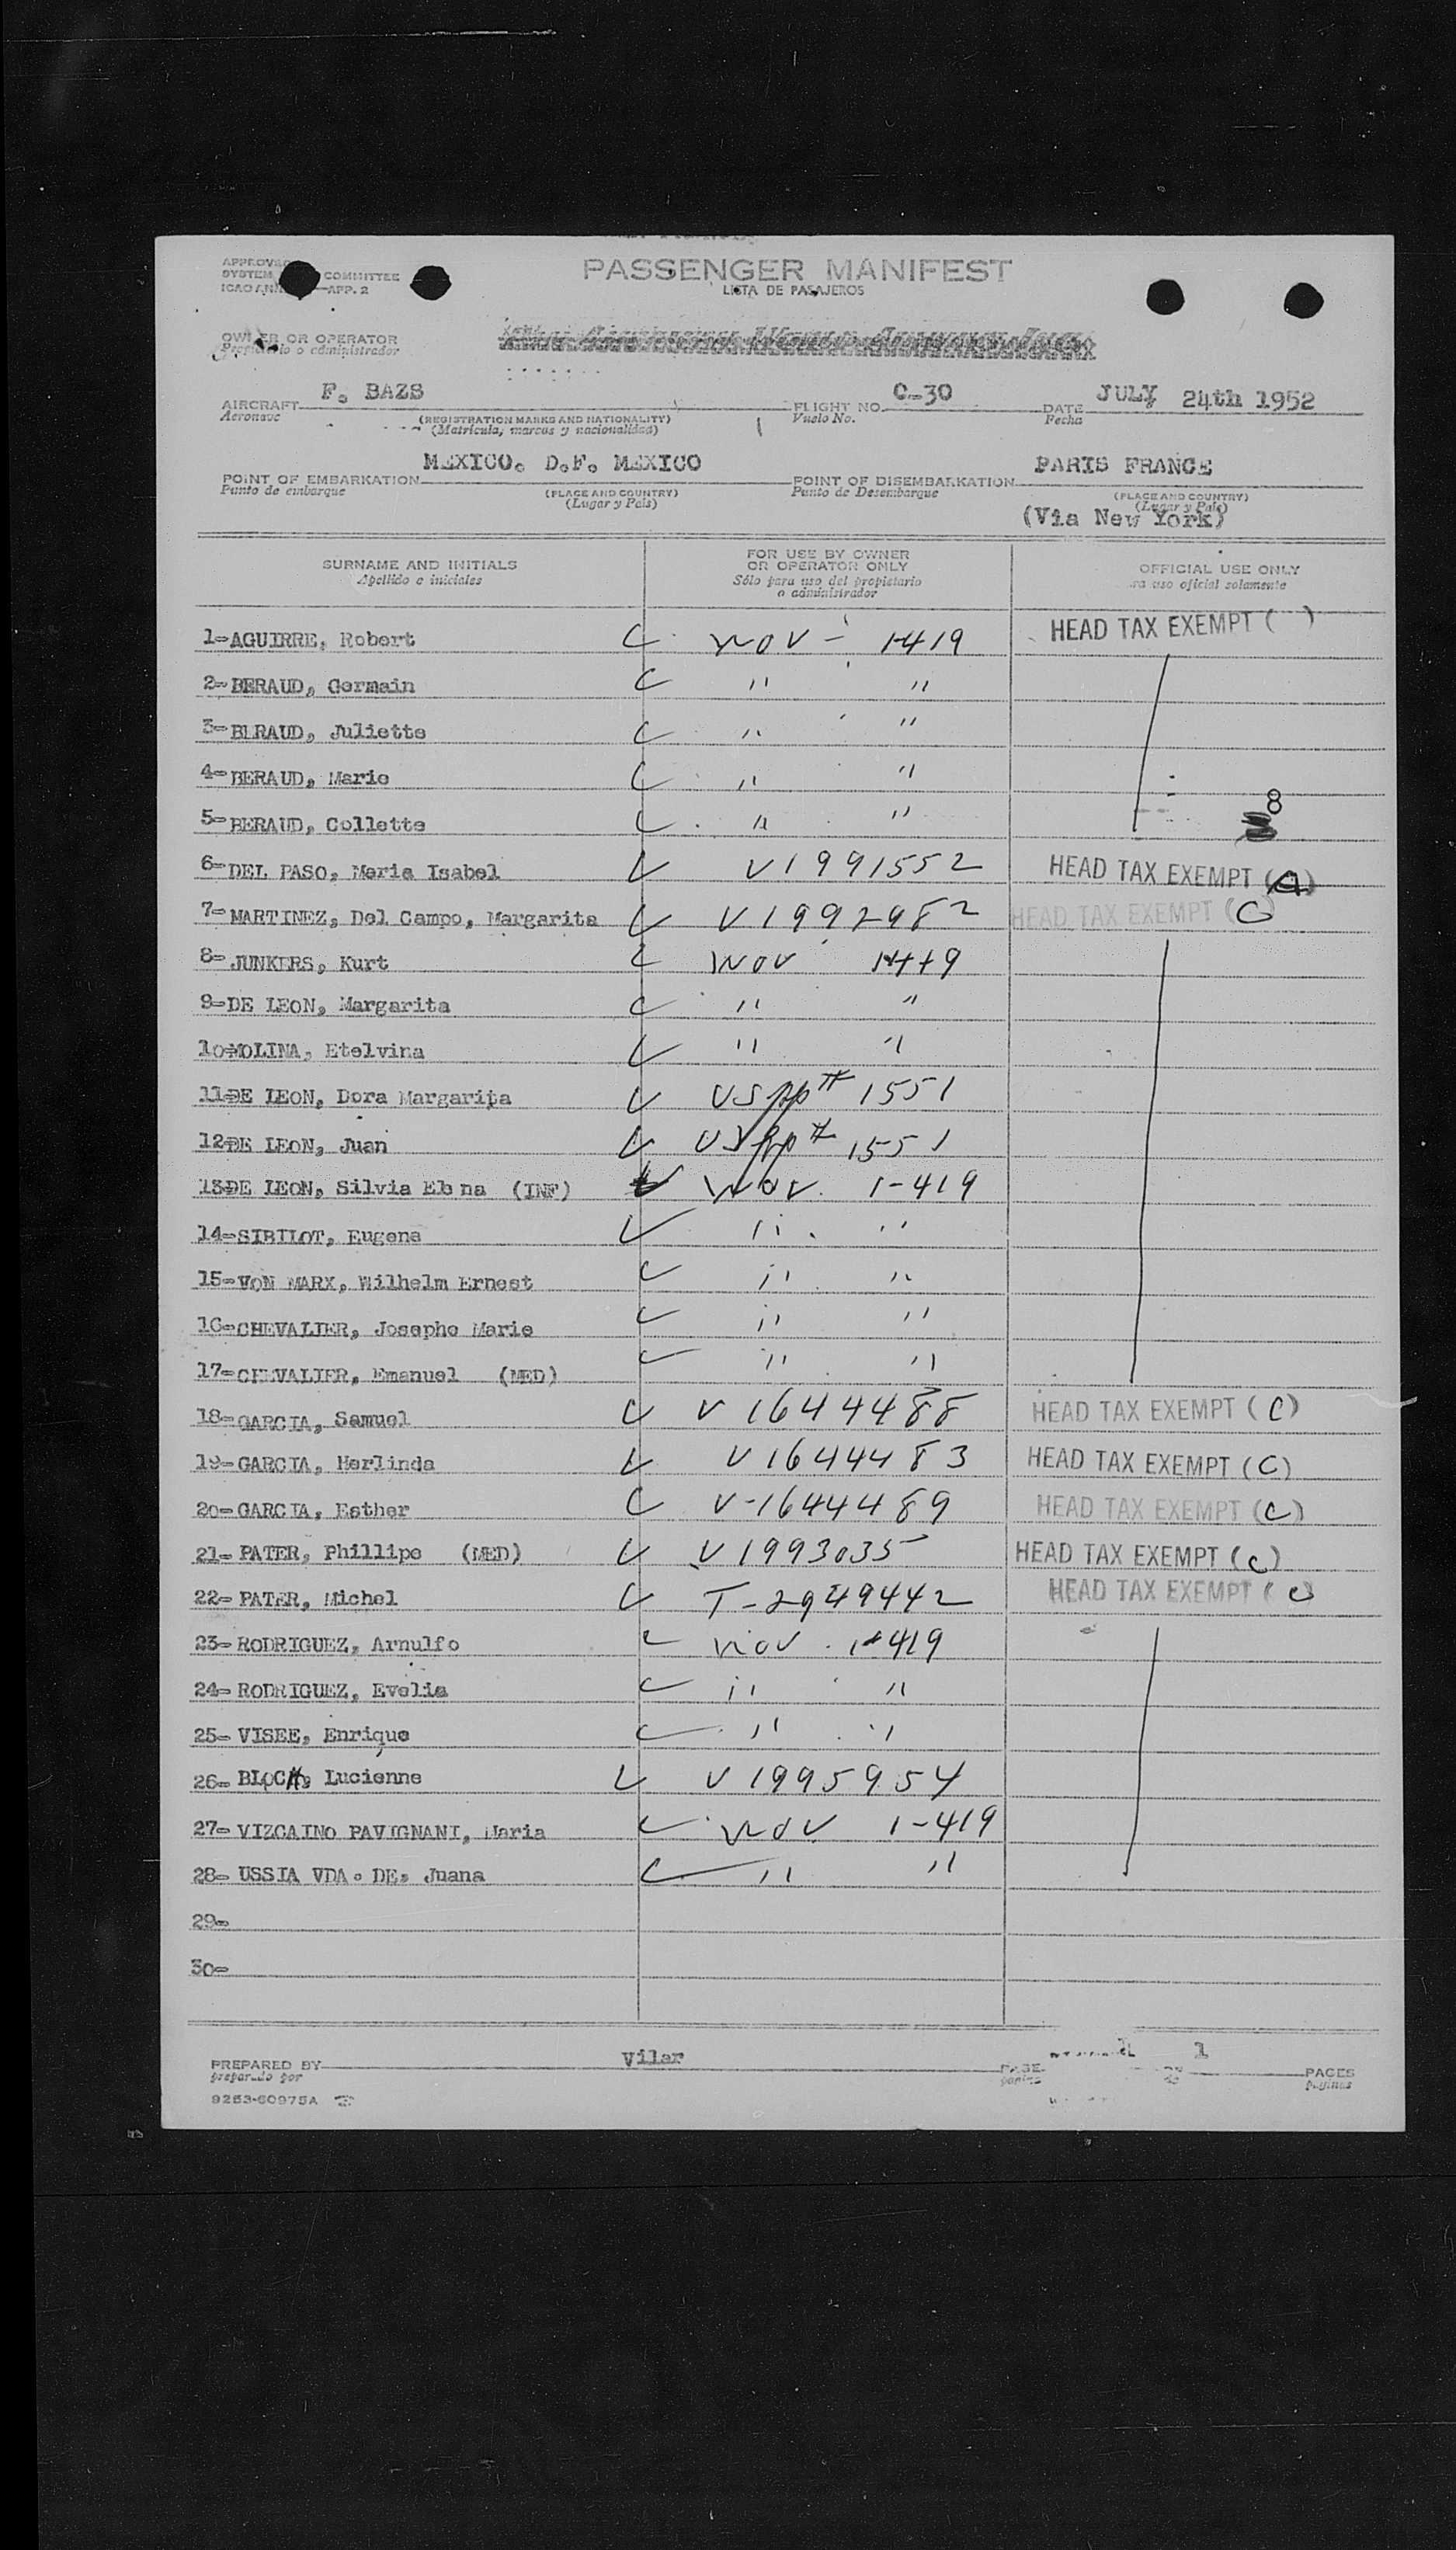 PASSENGER MANIFEST
LISTA DE PASAJEROS
COMMITTEE
SYSTEM
APP. 2
OWNER OR OPERATOR
Propietario o administrador
F. BAZS C-30 JULY 24th 1952
AIRCRAFT FLIGHT NO. DATE
Aeronave (REGISTRATION MARKS AND NATIONALITY) Vuelo No. Fecha
(Matrícula, marcas y nacionalidad)
MEXICO. D.F. MEXICO PARIS FRANCE
POINT OF EMBARKATION POINT OF DISEMBARKATION
Punto de embarque (PLACE AND COUNTRY) Punto de Desembarque (PLACE AND COUNTRY)
(Lugar y País) (Lugar y País)
(Via New York)
SURNAME AND INITIALS FOR USE BY OWNER OR OPERATOR ONLY OFFICIAL USE ONLY
Apellido e iniciales Sólo para uso del propietario o administrador ra uso oficial solamente
1-AGUIRRE, Robert WOV - 1-419 HEAD TAX EXEMPT ( )
2-BERAUD, Germain " "
3-BERAUD, Juliette " "
4-BERAUD, Marie " "
5-BERAUD, Collette " " 8
6-DEL PASO, Maria Isabel V1991552 HEAD TAX EXEMPT (A)
7-MARTINEZ, Del Campo, Margarita V1992982 HEAD TAX EXEMPT (C)
8-JUNKERS, Kurt WOV 1-419
9-DE LEON, Margarita " "
10-MOLINA, Etelvina " "
11-DE LEON, Dora Margarita US pp # 1551
12-DE LEON, Juan US pp # 1551
13-DE LEON, Silvia Elena (INF) WOV. 1-419
14-SIBILOT, Eugene " "
15-VON MARX, Wilhelm Ernest " "
16-CHEVALIER, Josephe Marie " "
17-CHEVALIER, Emanuel (MED) " "
18-GARCIA, Samuel V 1644488 HEAD TAX EXEMPT (C)
19-GARCIA, Herlinda V1644483 HEAD TAX EXEMPT (C)
20-GARCIA, Esther V-1644489 HEAD TAX EXEMPT (C)
21-PATER, Phillipe (MED) V1993035 HEAD TAX EXEMPT (C)
22-PATER, Michel T-2949442 HEAD TAX EXEMPT (C)
23-RODRIGUEZ, Arnulfo WOV. 1-419
24-RODRIGUEZ, Evelia " "
25-VISEE, Enrique " "
26-BLOCH, Lucienne V1995954
27-VIZCAINO PAVIGNANI, Maria WOV 1-419
28-USSIA VDA. DE, Juana " "
29-
30-
Vilar 1
PREPARED BY PAGE PAGES
preparado por pagina paginas
9253-60975A